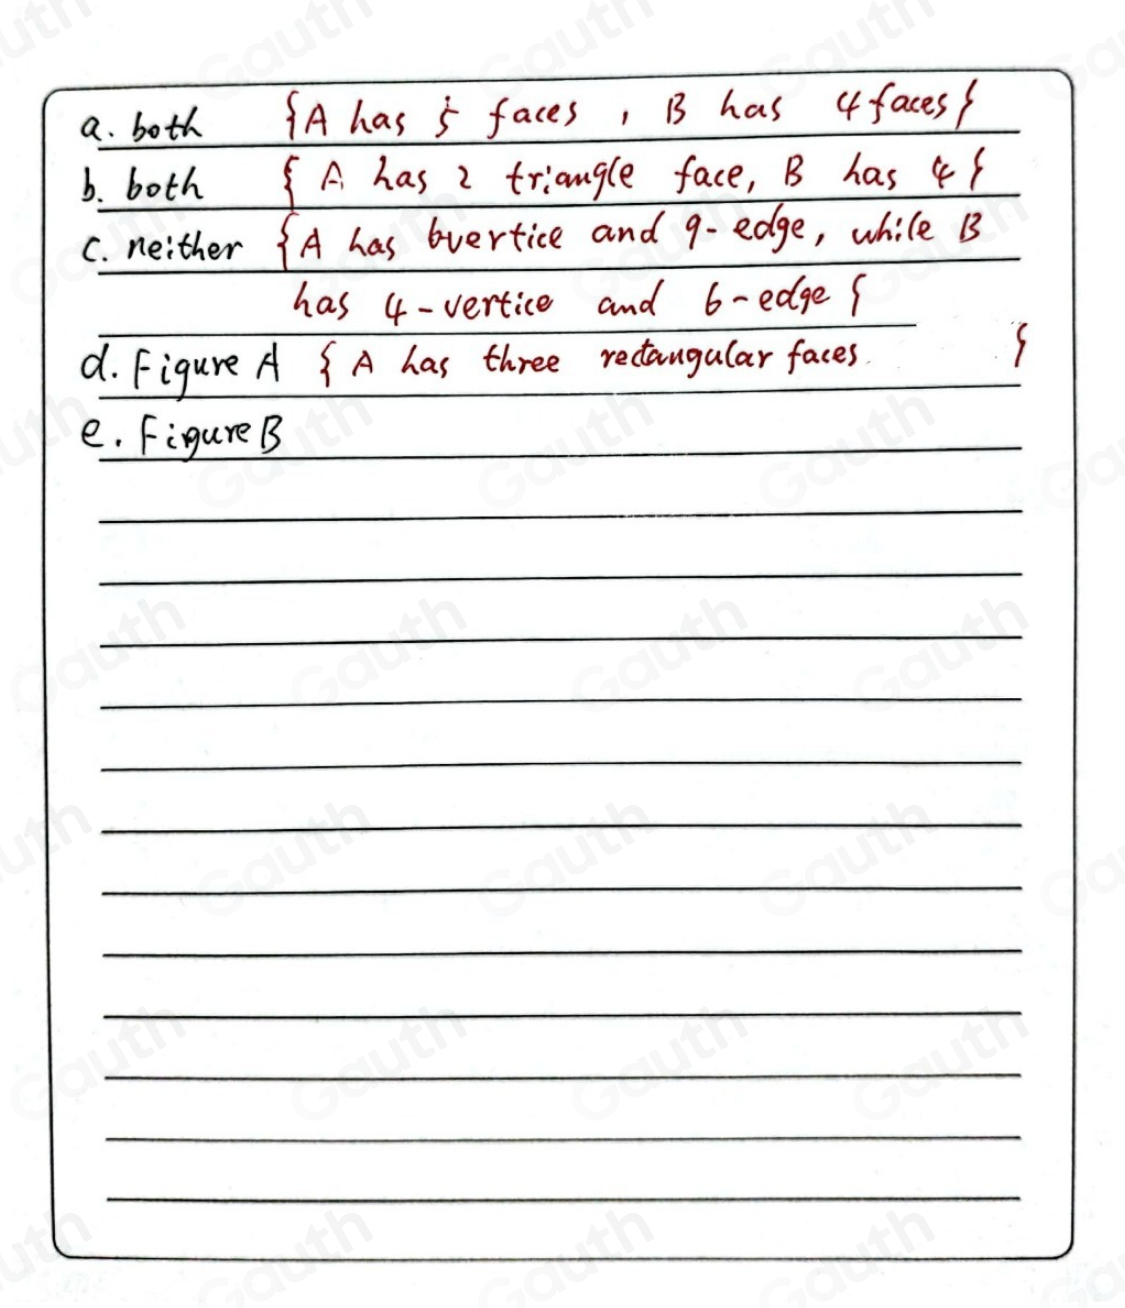 a. both {A has 5 faces, B has 4 faces}
b. both { A has 2 triangle face, B has 4 }
c. neither {A has 6vertice and 9-edge, while B
has 4-vertice and 6-edge }
d. Figure A { A has three rectangular faces. }
e. Figure B